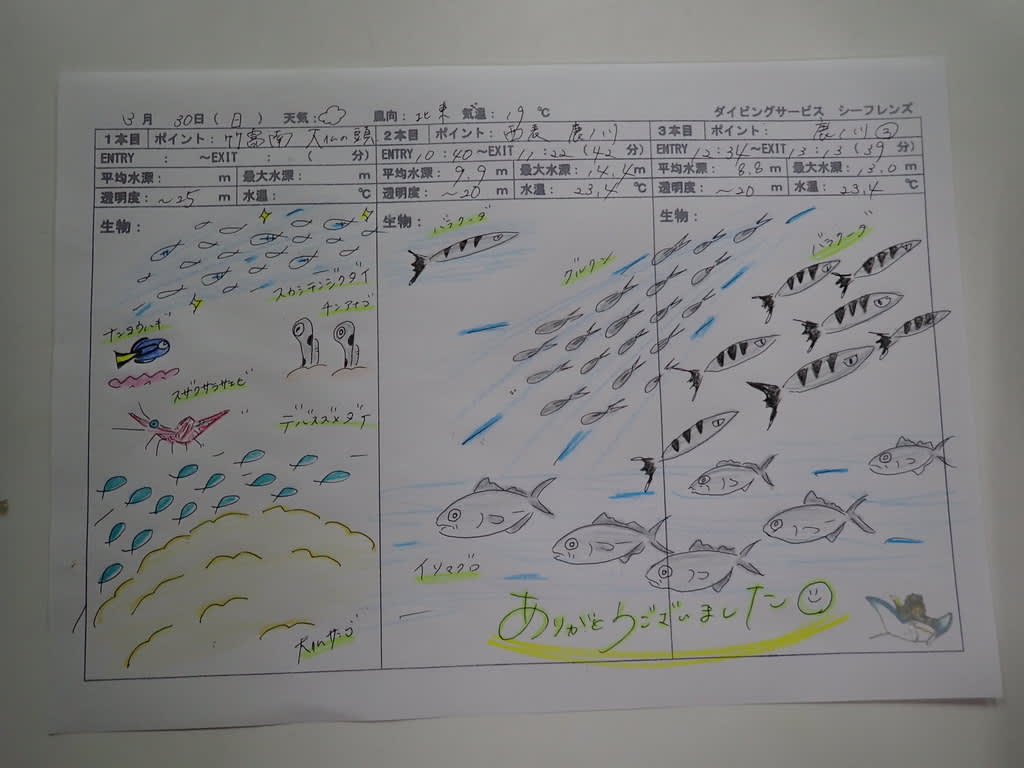 3月 30日(日) 天気: 風向: 北東 気温: 19 ℃ ダイビングサービス シーフレンズ
1本目 ポイント: 竹富南 大仏の頭
ENTRY : ～EXIT : ( 分)
平均水深: m 最大水深: m
透明度: ～25 m 水温: ℃
生物:
スカシテンジクダイ
チンアナゴ
ナンヨウハギ
スザクサラサエビ
デバスズメダイ
大仏サンゴ
2本目 ポイント: 西表 鹿ノ川
ENTRY 10:40～EXIT 11:22 (42 分)
平均水深: 9.9 m 最大水深: 14.4 m
透明度: ～20 m 水温: 23.4 ℃
生物:
バラクーダ
グルクン
イソマグロ
3本目 ポイント: 鹿ノ川②
ENTRY 12:34～EXIT 13:13 (39 分)
平均水深: 8.8 m 最大水深: 13.0 m
透明度: ～20 m 水温: 23.4 ℃
生物:
バラクーダ
ありがとうございました